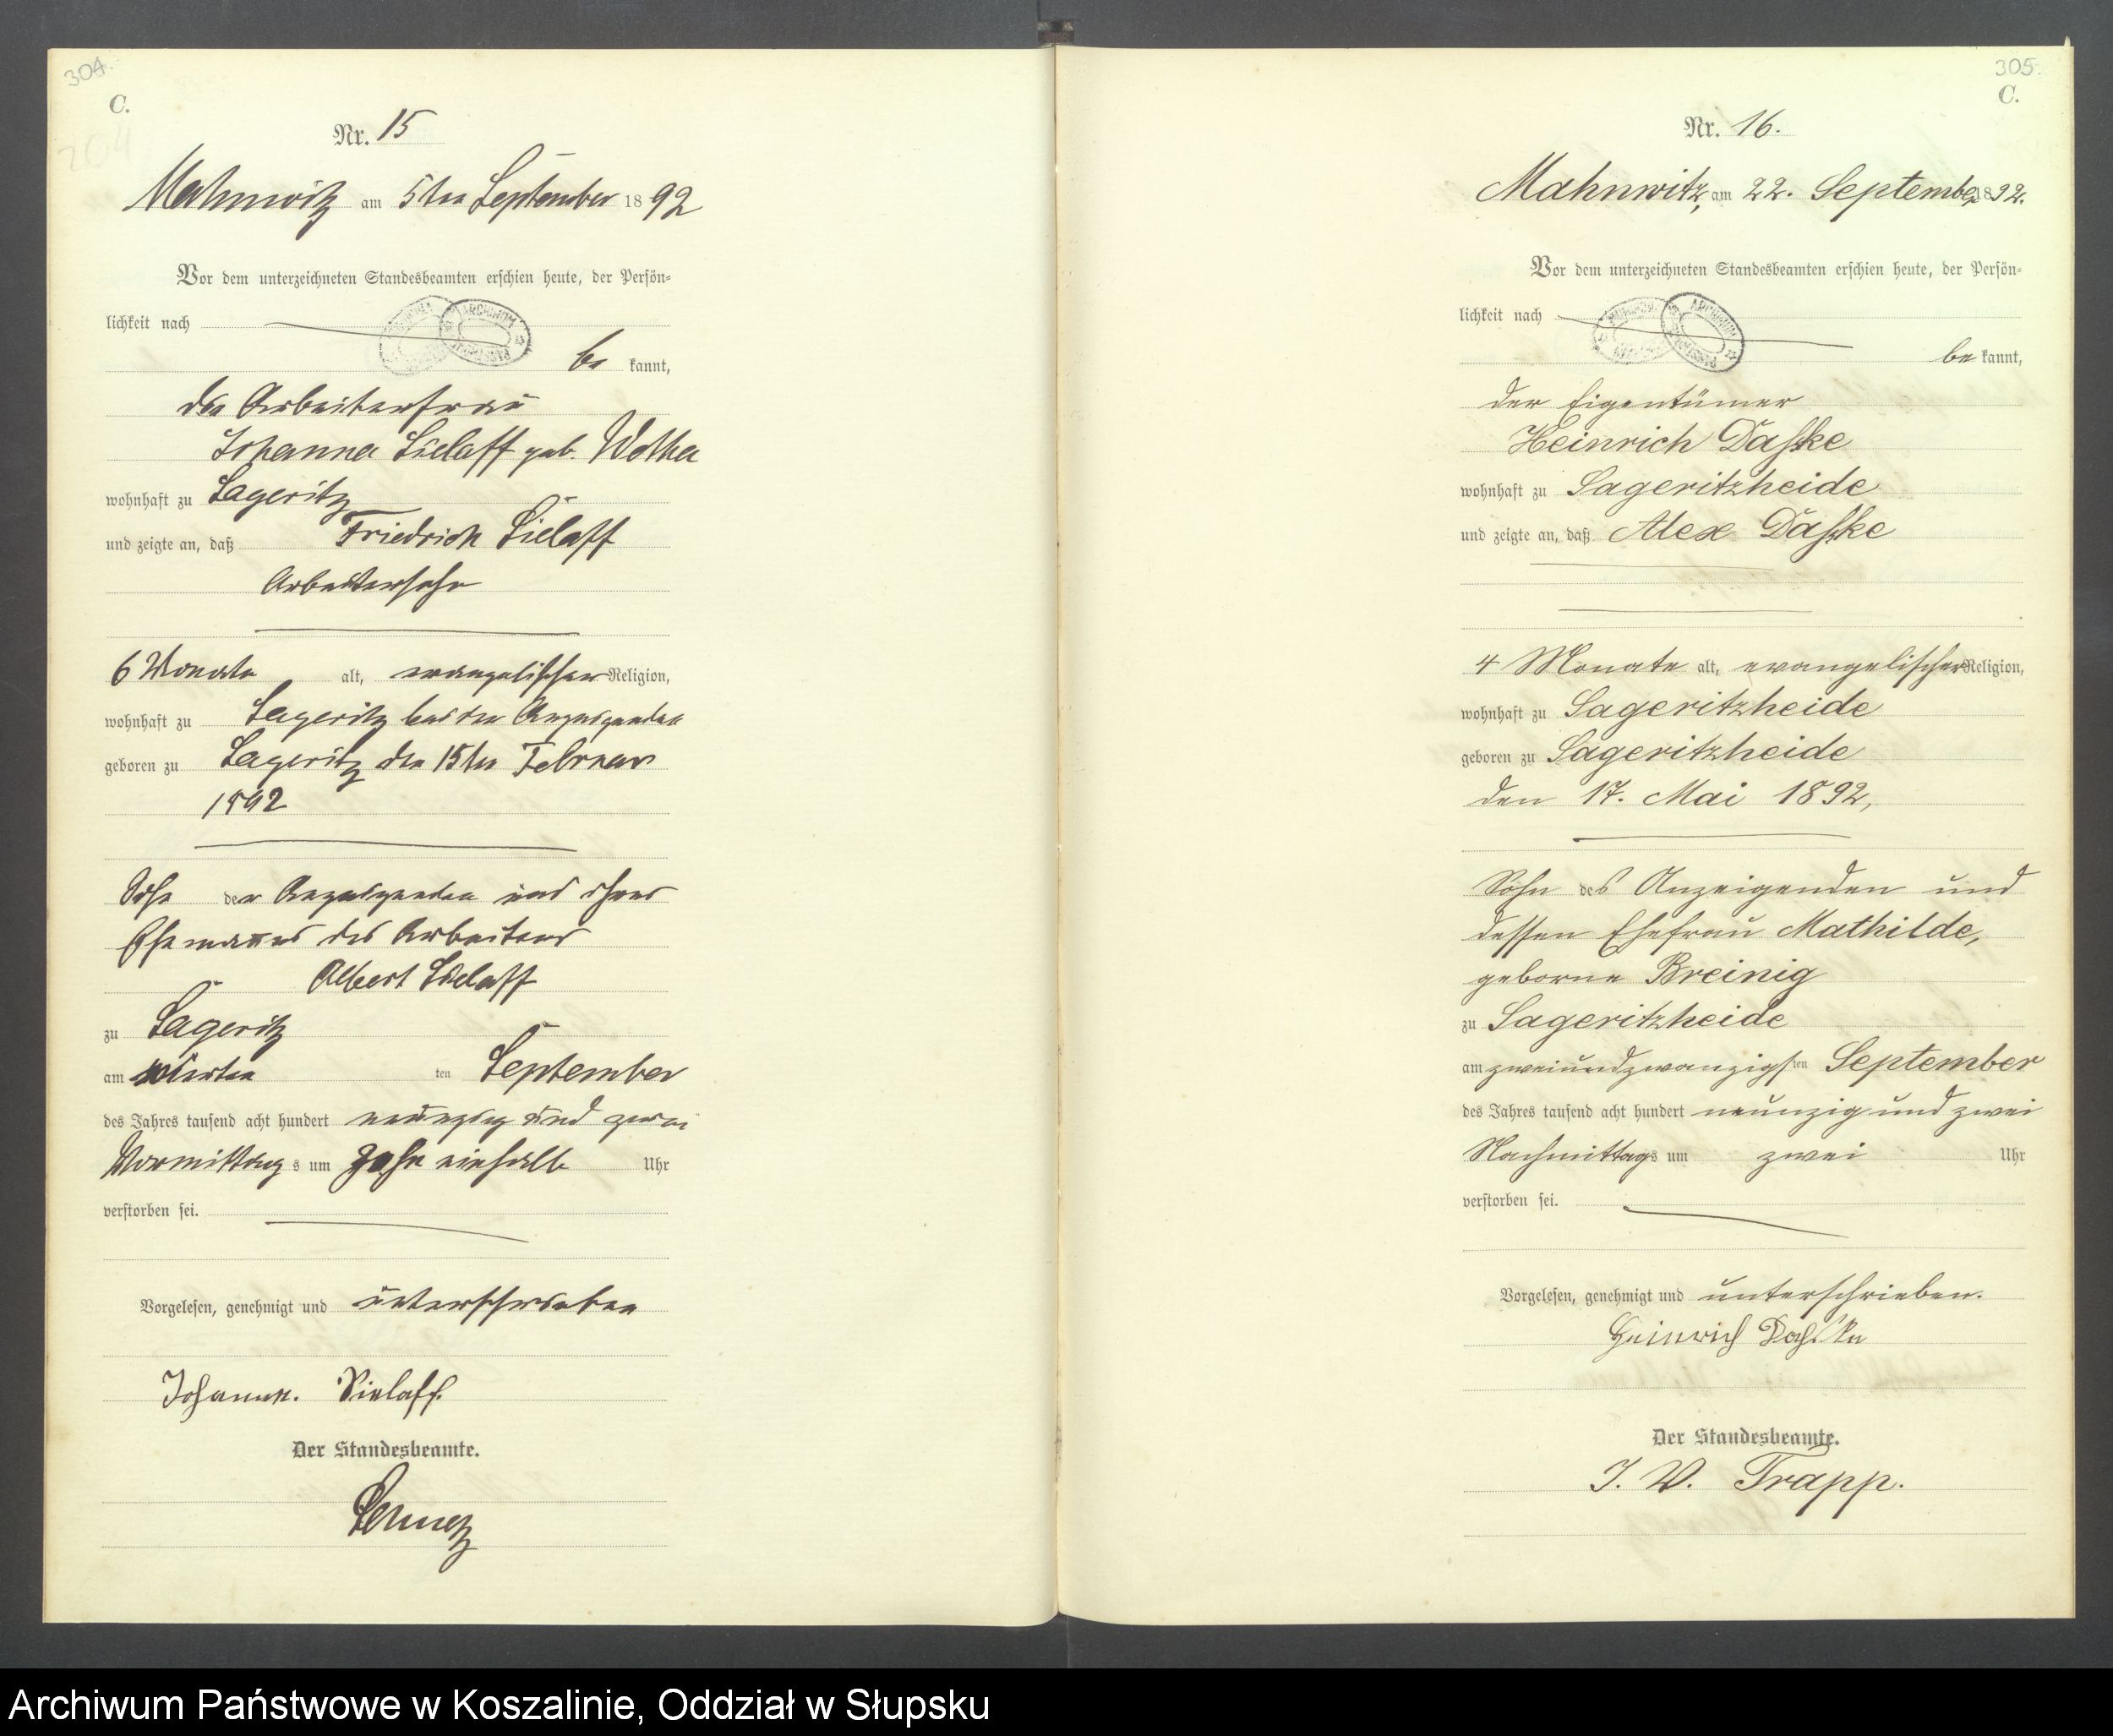 304.
C.
204
Nr. 15
Mahnwitz am 5ten September 1892
Vor dem unterzeichneten Standesbeamten erschien heute, der Persön-
lichkeit nach
ARCHIWUM
be kannt,
die Arbeiterfrau
Johanna Sielaff geb. Wothe
wohnhaft zu Sageritz
und zeigte an, daß Friedrich Sielaff
Arbeitersohn
6 Monate alt, evangelischer Religion,
wohnhaft zu Sageritz bei der Anzeigenden
geboren zu Sageritz den 15ten Februar
1892
Sohn der Anzeigenden und ihres
Ehemannes des Arbeiters
Albert Sielaff
zu Sageritz
am vierten ten September
des Jahres tausend acht hundert neunzig und zwei
Vormittags um zehn einhalb Uhr
verstorben sei.
Vorgelesen, genehmigt und unterschrieben
Johanne. Sielaff.
Der Standesbeamte.
305.
C.
Nr. 16.
Mahnwitz, am 22. September 1892.
Vor dem unterzeichneten Standesbeamten erschien heute, der Persön-
lichkeit nach
ARCHIWUM
be kannt,
der Eigentümer
Heinrich Daßke
wohnhaft zu Sageritzheide
und zeigte an, daß Alex Daßke
4 Monate alt, evangelischer Religion,
wohnhaft zu Sageritzheide
geboren zu Sageritzheide
den 17. Mai 1892,
Sohn des Anzeigenden und
dessen Ehefrau Mathilde,
geborne Breinig
zu Sageritzheide
am zweiundzwanzigsten September
des Jahres tausend acht hundert neunzig und zwei
Nachmittags um zwei Uhr
verstorben sei.
Vorgelesen, genehmigt und unterschrieben.
Heinrich Daßke
Der Standesbeamte.
J. V. Trapp.
Archiwum Państwowe w Koszalinie, Oddział w Słupsku